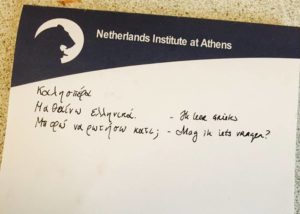 Netherlands Institute at Athens
Καλησπέρα
Μαθαίνω Ελληνικά. - Ik leer grieks
Μπορώ να ρωτήσω κάτι; - Mag ik iets vragen?